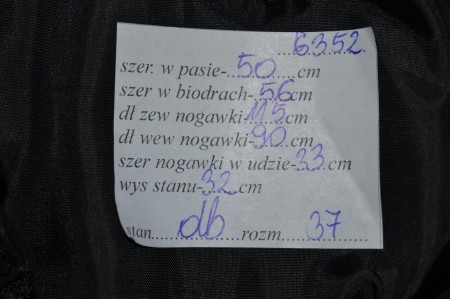 6352
szer. w pasie-...50......cm
szer w biodrach-.56.cm
dł zew nogawki-115.cm
dł wew nogawki-90.cm
szer nogawki w udzie-33.cm
wys stanu-32.cm
stan....db....rozm....37....